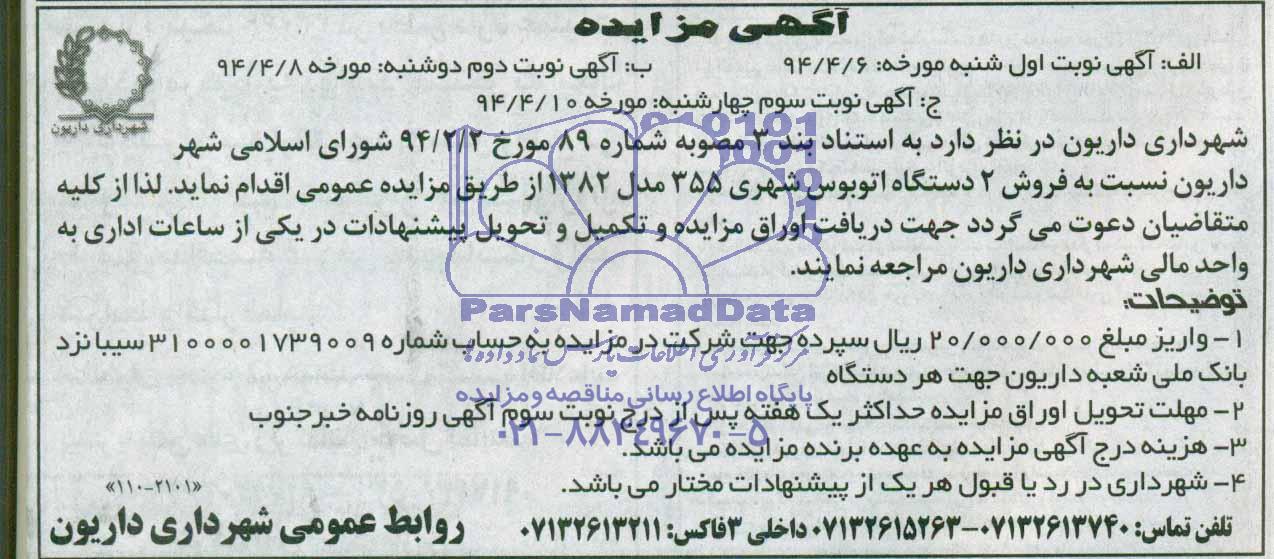 آگهی مزایده
الف: آگهی نوبت اول شنبه مورخه: ۹۴/۴/۶ ب: آگهی نوبت دوم دوشنبه: مورخه ۹۴/۴/۸
ج: آگهی نوبت سوم چهارشنبه: مورخه ۹۴/۴/۱۰
شهرداری داریون
شهرداری داریون در نظر دارد به استناد بند ۳ مصوبه شماره ۸۹ مورخ ۹۴/۲/۲ شورای اسلامی شهر
داریون نسبت به فروش ۲ دستگاه اتوبوس شهری ۳۵۵ مدل ۱۳۸۲ از طریق مزایده عمومی اقدام نماید. لذا از کلیه
متقاضیان دعوت می گردد جهت دریافت اوراق مزایده و تکمیل و تحویل پیشنهادات در یکی از ساعات اداری به
واحد مالی شهرداری داریون مراجعه نمایند.
توضیحات:
۱- واریز مبلغ ۲۰/۰۰۰/۰۰۰ ریال سپرده جهت شرکت در مزایده به حساب شماره ۳۱۰۰۰۰۱۷۳۹۰۰۹ سیبا نزد
بانک ملی شعبه داریون جهت هر دستگاه
۲- مهلت تحویل اوراق مزایده حداکثر یک هفته پس از درج نوبت سوم آگهی روزنامه خبرجنوب
۳- هزینه درج آگهی مزایده به عهده برنده مزایده می باشد.
۴- شهرداری در رد یا قبول هر یک از پیشنهادات مختار می باشد.
«۱۱۰-۲۱۰۱»
تلفن تماس: ۰۷۱۳۲۶۱۳۷۴۰-۰۷۱۳۲۶۱۵۲۶۳ داخلی ۳ فاکس: ۰۷۱۳۲۶۱۳۲۱۱
روابط عمومی شهرداری داریون
ParsNamadData
مرکز فرآوری اطلاعات پارس نماد داده ها
پایگاه اطلاع رسانی مناقصه و مزایده
۰۲۱-۸۸۳۴۹۶۷۰-۵